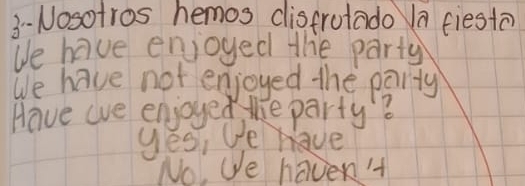 3-- Nosotros hemos disfrutado la fiesta
We have enjoyed the party
We have not enjoyed the party
Have we enjoyed the party?
Yes, We have
No, We haven't